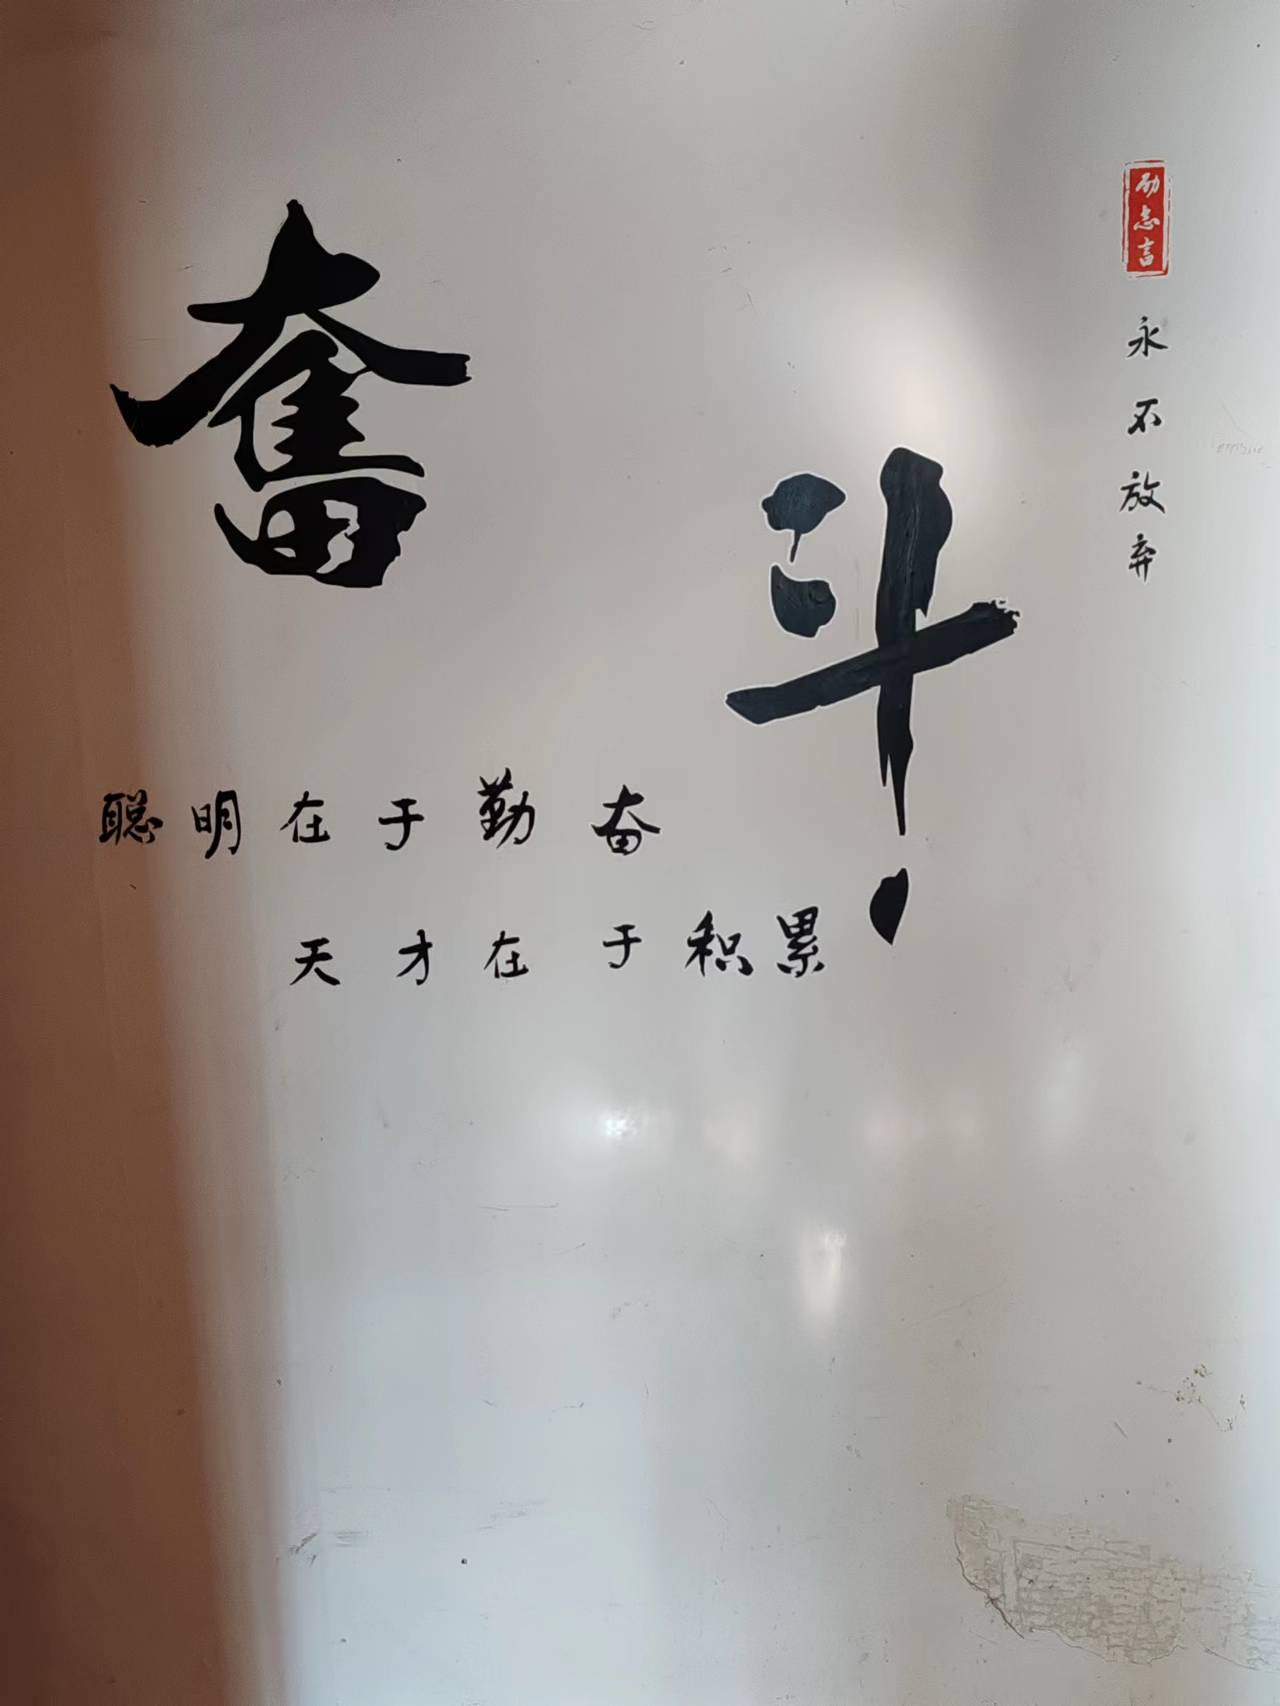 奮
斗
励志言
永不放弃
聪明在于勤奋
天才在于积累